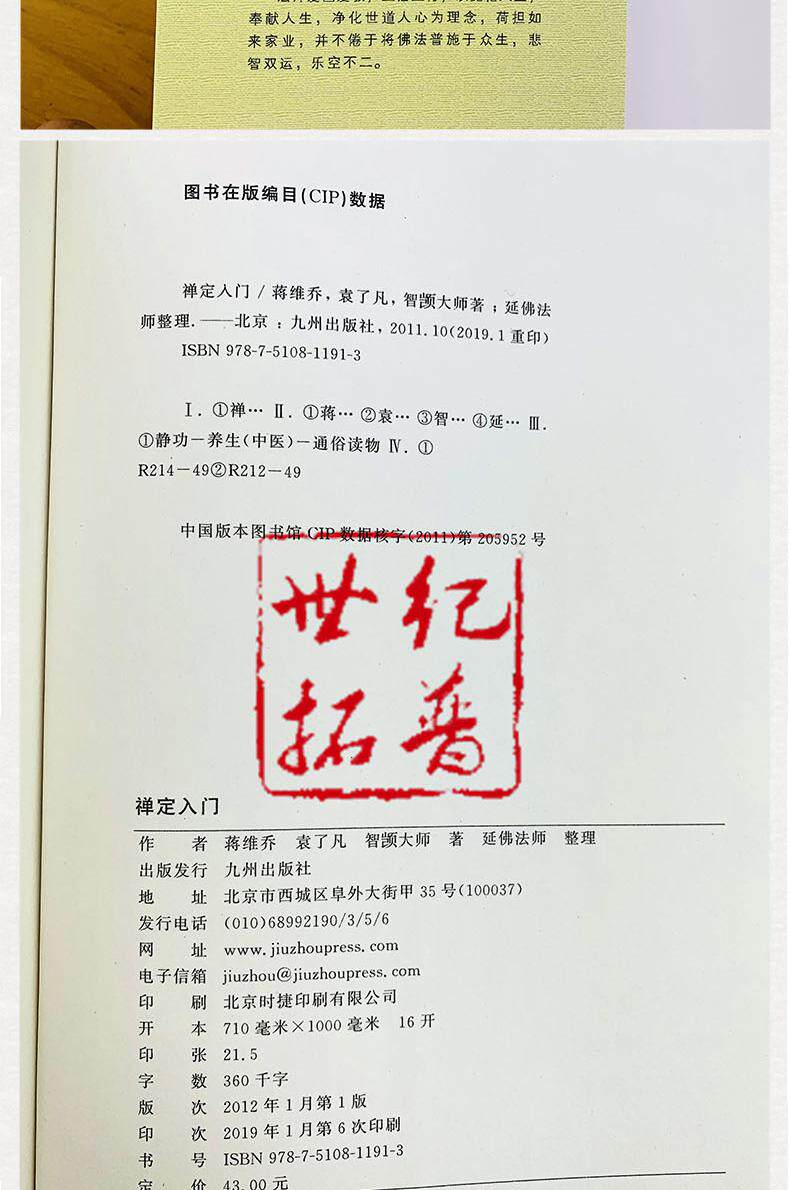 奉献人生，净化世道人心为理念，荷担如
来家业，并不倦于将佛法普施于众生，悲
智双运，乐空不二。
图书在版编目(CIP)数据
禅定入门 / 蒋维乔，袁了凡，智顗大师著；延佛法
师整理. ——北京：九州出版社，2011.10(2019.1重印)
ISBN 978-7-5108-1191-3
Ⅰ. ①禅… Ⅱ. ①蒋… ②袁… ③智… ④延… Ⅲ.
①静功－养生(中医)－通俗读物 Ⅳ. ①
R214－49②R212－49
中国版本图书馆 CIP 数据核字(2011)第 205952 号
世纪
拓普
禅定入门
作 者 蒋维乔 袁了凡 智顗大师 著 延佛法师 整理
出版发行 九州出版社
地 址 北京市西城区阜外大街甲 35 号(100037)
发行电话 (010)68992190/3/5/6
网 址 www.jiuzhoupress.com
电子信箱 jiuzhou@jiuzhoupress.com
印 刷 北京时捷印刷有限公司
开 本 710 毫米×1000 毫米 16 开
印 张 21.5
字 数 360 千字
版 次 2012 年 1 月第 1 版
印 次 2019 年 1 月第 6 次印刷
书 号 ISBN 978-7-5108-1191-3
定 价 43.00 元